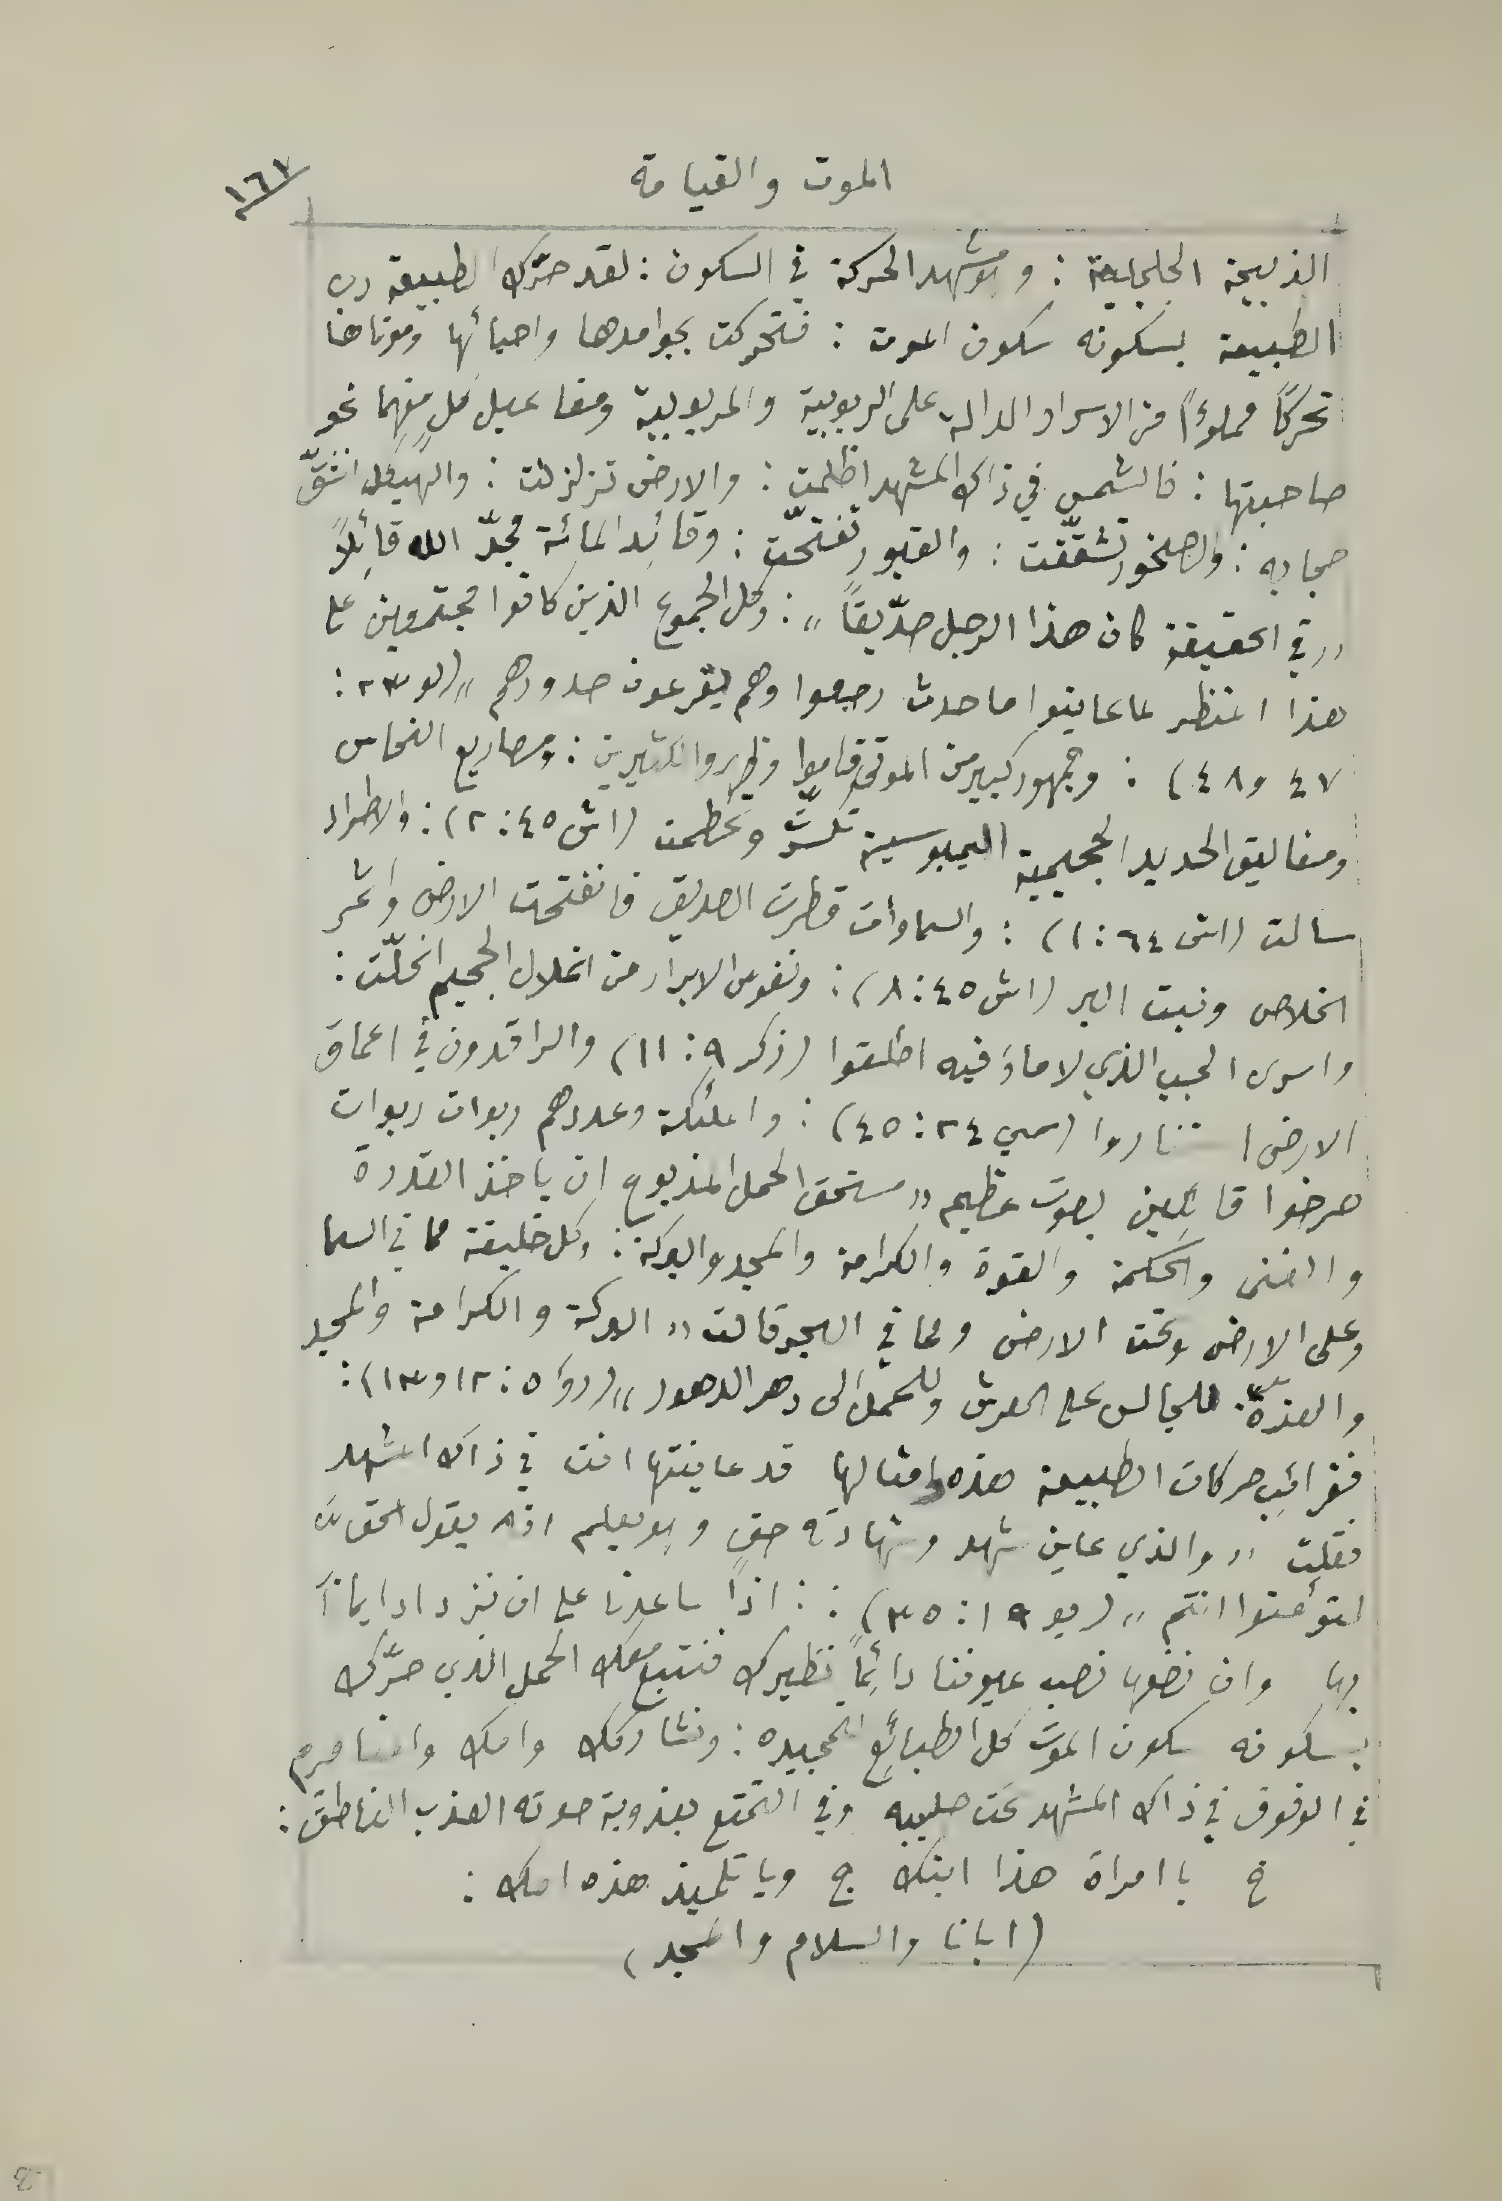 ١٦٧
الموت والقيامة
الذبيحة الجلجلية : ومشهد الحركة في السكون : لقد حرّك الطبيعة رب
الطبيعة بسكونه سكون الموت : فتحركت بجوامدها واحيائها وموتاها
تحركًا مملوءًا من الاسرار الدالة على الربوبية والمربوبية ومفاعيل كلٍ منهما نحو
صاحبتها : فالشمس في ذاك المشهد اظلمت : والارض تزلزلت : والهيكل انشقّ
حجابه : والصخور تشقّقت : والقبور تفتحّت : وقائد المائة مجدّ الله قائلاً
"في الحقيقة كان هذا الرجل صدّيقاً" : وكل الجموع الذين كانوا مجتمعين على
هذا المنظر لما عاينوا ما حدث رجعوا وهم يقرعون صدورهم" (لو ٢٣ :
٤٧ و ٤٨) : وجمهور كبير من الموتى قاموا وظهروا لكثيرين : ومصاريع النحاس
ومغاليق الحديد الجحيمية اليبوسية تكسرّت وتحطمت (اش ٤٥ : ٢) : والاطواد
سالت (اش ٦٤ : ١) : والسماوات قطرت الصديق فانفتحت الارض واثمر
الخلاص ونبت البر (اش ٤٥ : ٨) : ونفوس الابرار من اغلال الجحيم انحلّت :
واسرى الجب الذي لا ماءَ فيه اطلقوا (زكر ٩ : ١١) والراقدون في اعماق
الارض استناروا (سي ٢٤ : ٤٥) : والملئكة وعددهم ربوات ربوات
صرخوا قائلين بصوت عظيم "مستحق الحمل المذبوح ان ياخذ القدرة
والغنى والحكمة والقوة والكرامة والمجد والبركة : وكل خليقة مما في السما
وعلى الارض وتحت الارض ومما في البحر قالت "البركة والكرامة والمجد
والعزة للجالس على العرش وللحمل الى دهر الدهور" (رؤ ٥ : ١٢ و ١٣) :
فغرائب حركات الطبيعة هذه وامثالها قد عاينتها انت في ذاك المشهد
فقلت "والذي عاين شهد وشهادته حق وهو يعلم انه يقول الحق
لتؤمنوا انتم" (يو ١٩ : ٣٥) : : اذًا ساعدنا على ان نزداد ايمانًا
بها وان نضعها نصب عيوننا دائمًا نظيرك فنتبع معك الحمل الذي حرّك
بسكونه سكون الموت كل الطبائع العجيبة : ونشاركك وامك
في الوقوف في ذاك المشهد تحت صليبه وفي التمتع بعذوبة صوته العذب الناطق :
خ يا امراة هذا ابنك ج ويا تلميذ هذه امك :
(ابانا والسلام والمجد)